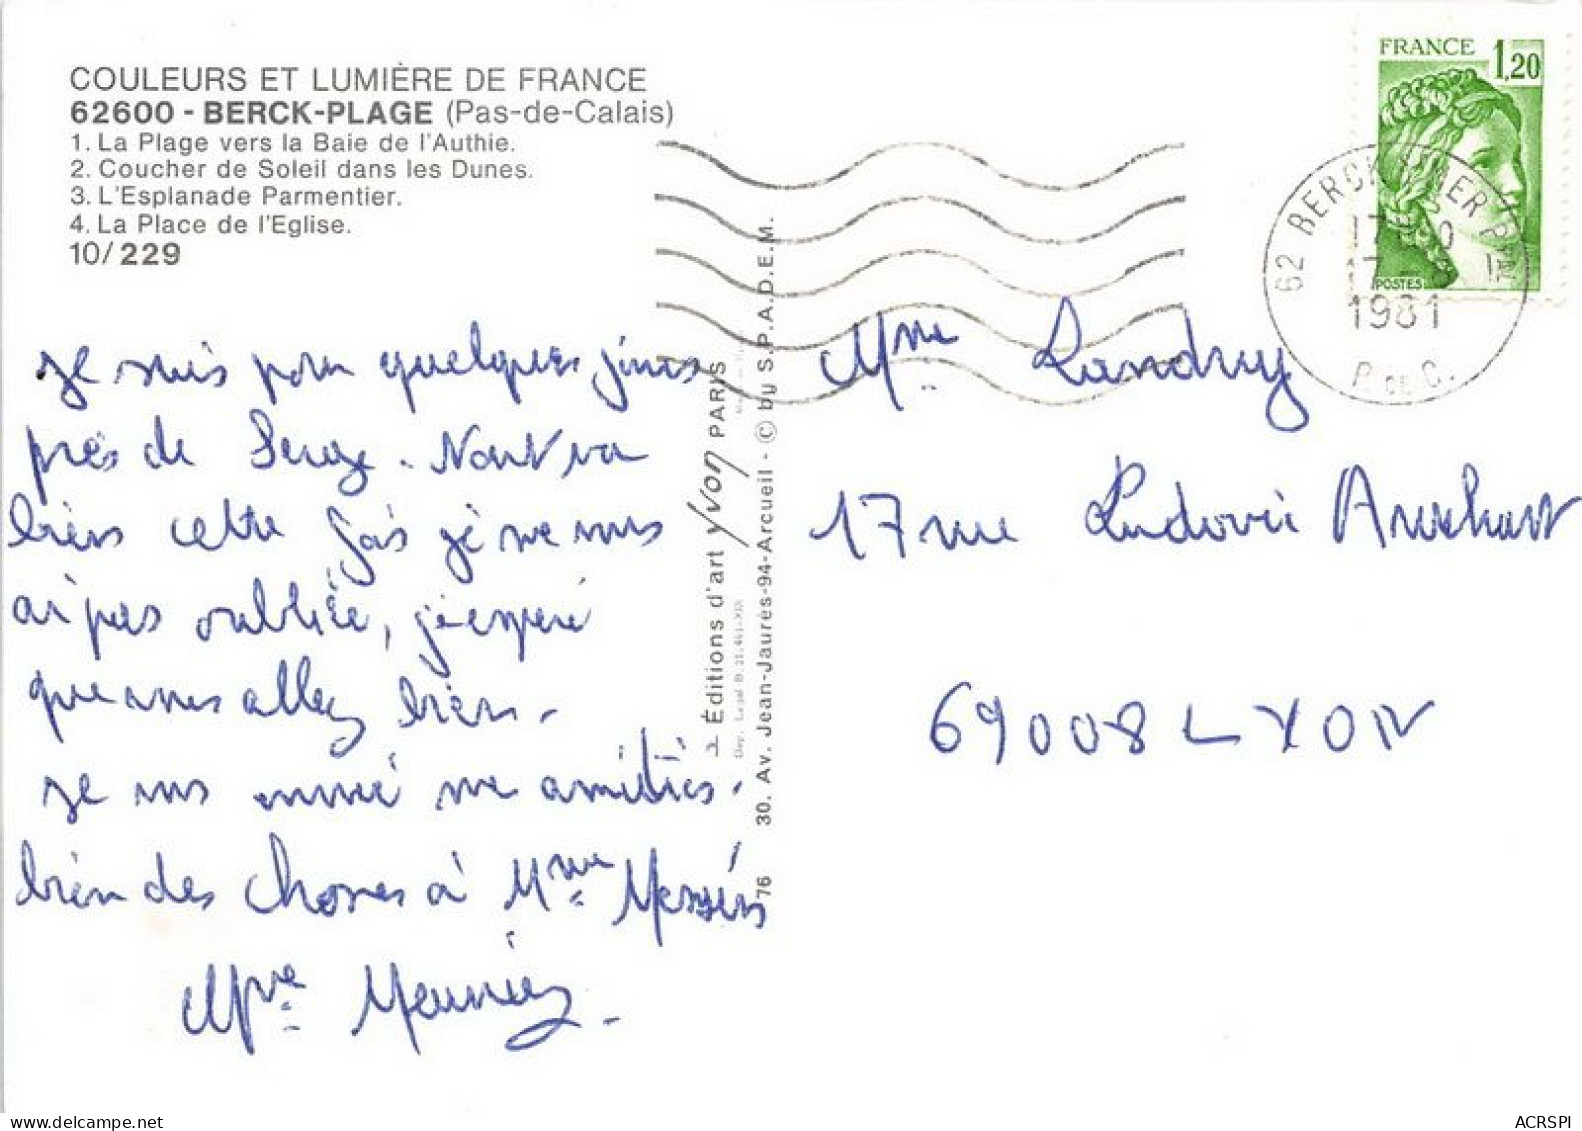 COULEURS ET LUMIÈRE DE FRANCE
62600 - BERCK-PLAGE (Pas-de-Calais)
1. La Plage vers la Baie de l'Authie.
2. Coucher de Soleil dans les Dunes.
3. L'Esplanade Parmentier.
4. La Place de l'Eglise.
10/229
je suis pour quelques jours
près de Serge. tout va
bien cette fois je ne vous
ai pas oubliée, j'espère
que vous allez bien.
je vous envoie mes amitiés.
bien des choses à Mme
Mme Meunier.
Éditions d'art yvon PARIS
30. Av. Jean-Jaurès-94-Arcueil - © by S.P.A.D.E.M.
76
FRANCE 1,20
POSTES
62 BERCK
17
17
1981
P. DE C.
Mme Landry
17 rue Ludovic
69008 LYON
ACRSPI